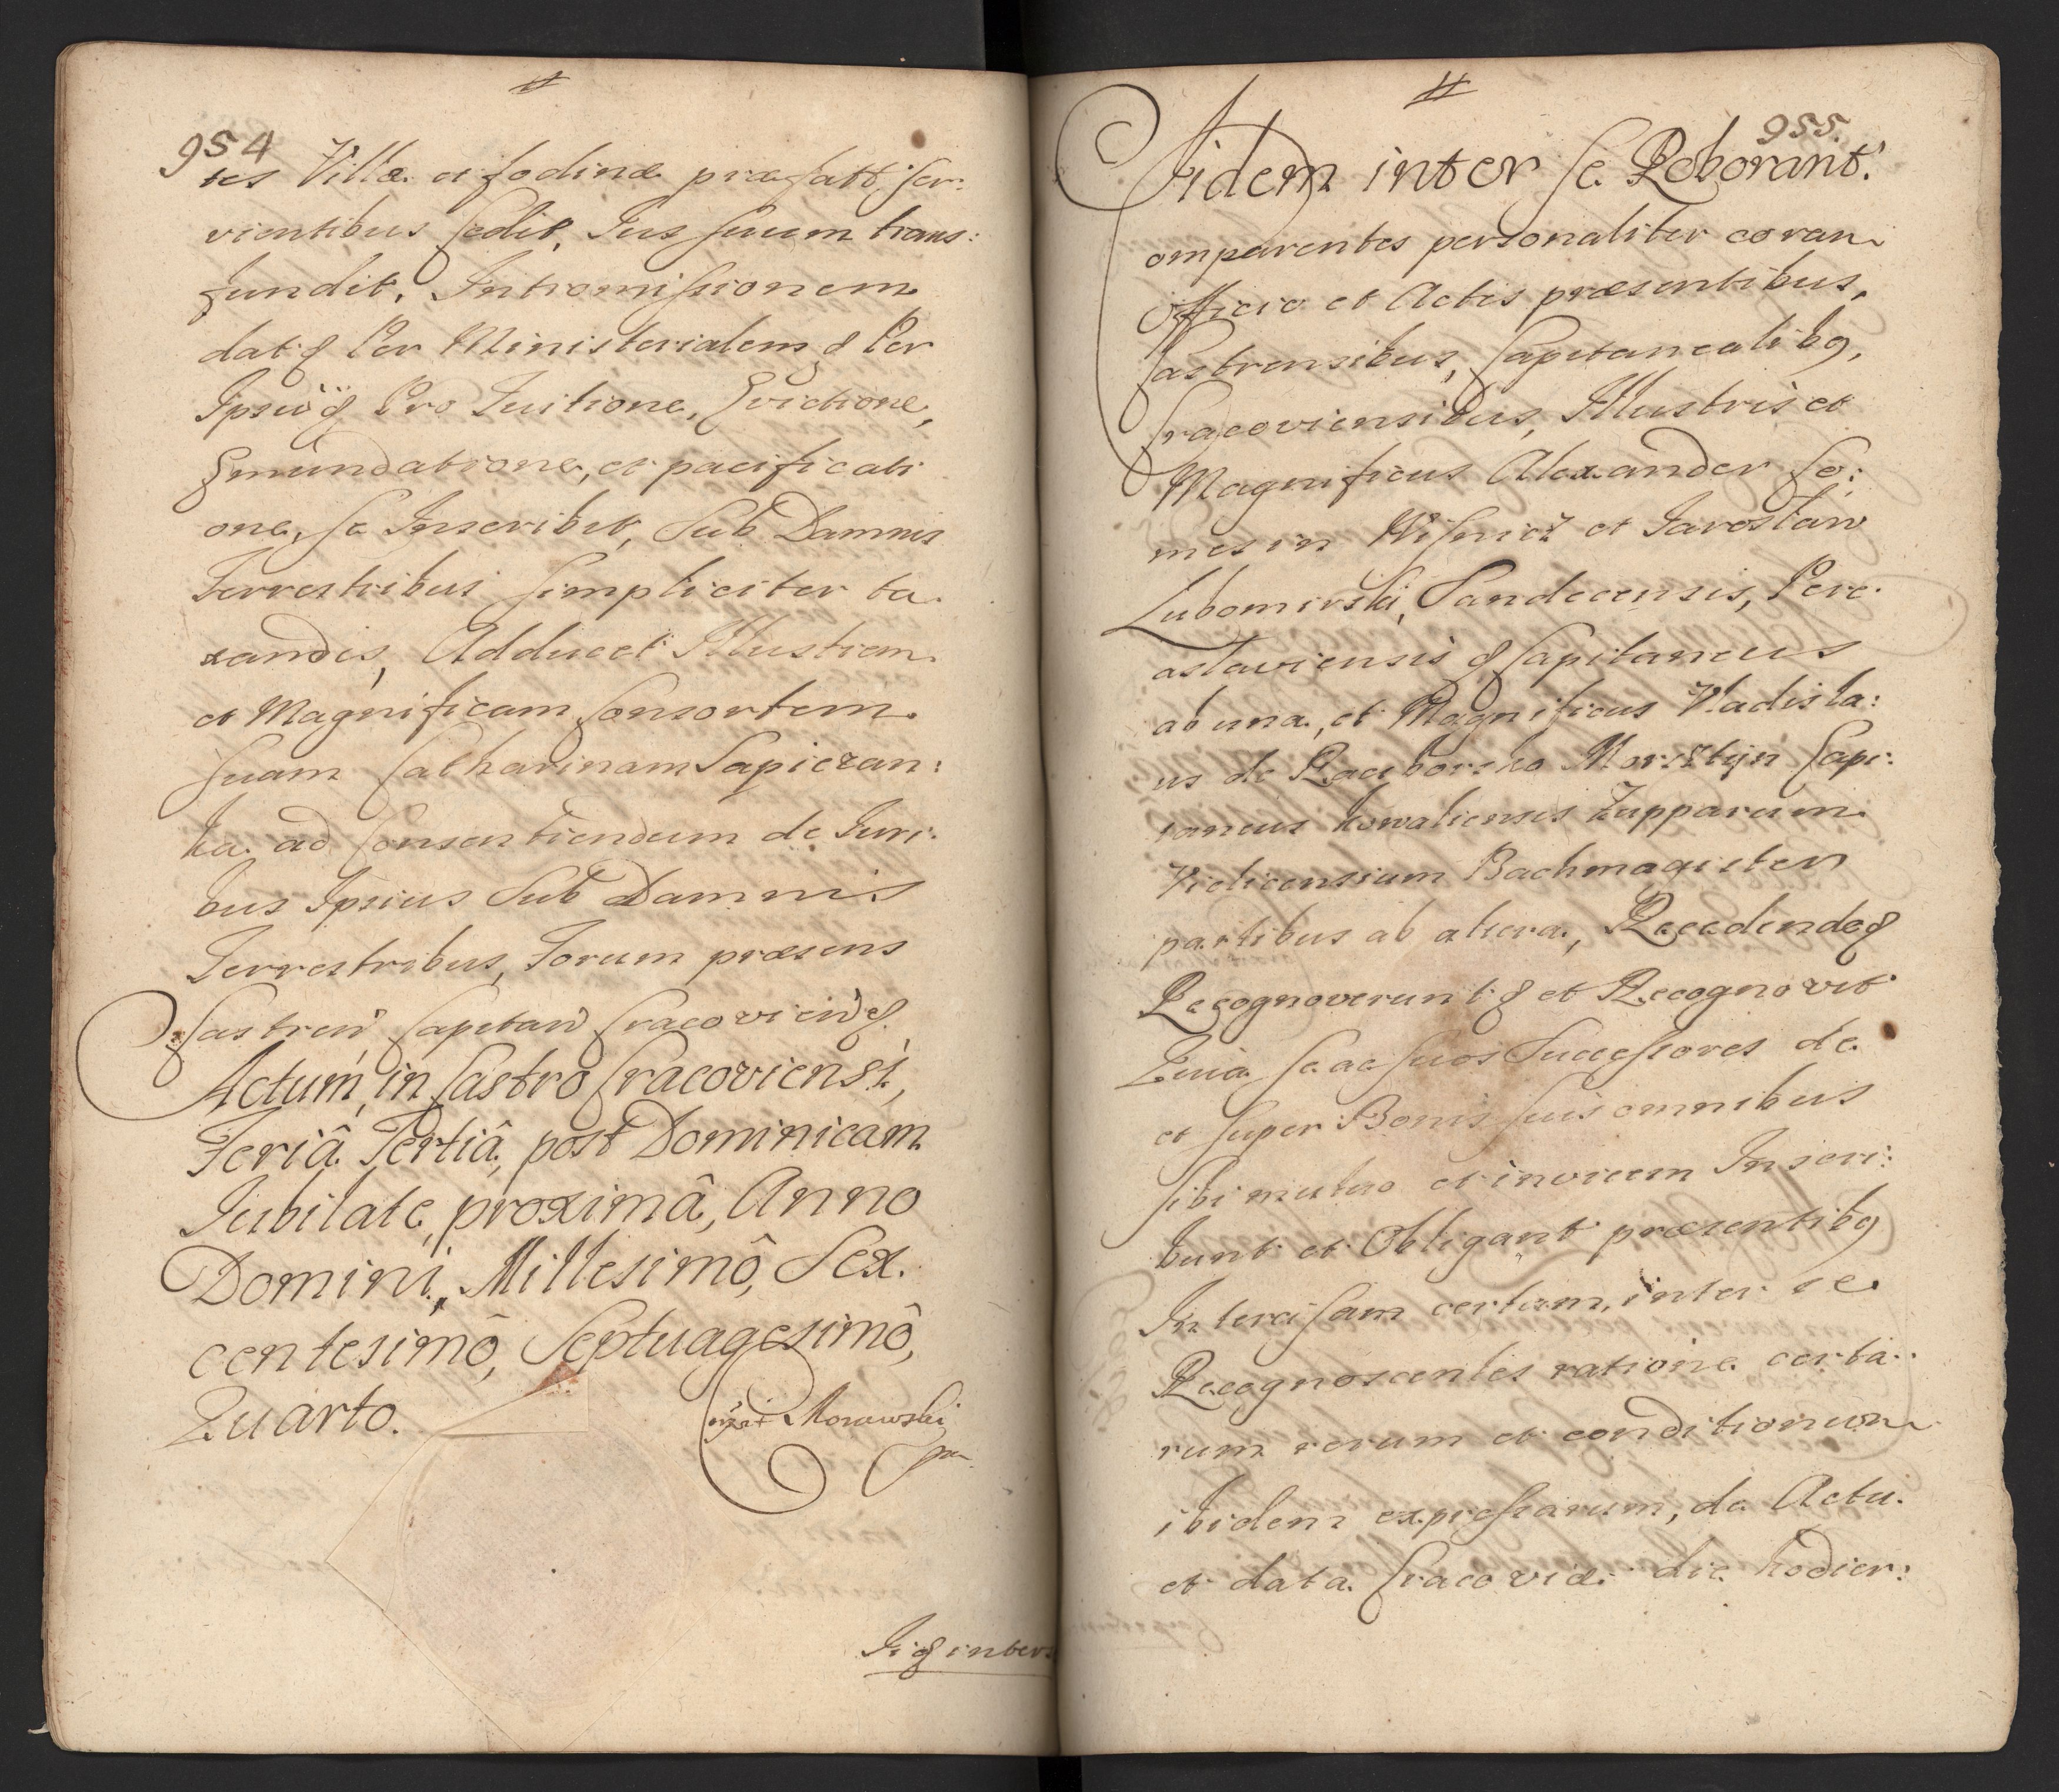 954
tes Villæ et fodinæ præfatt, ser:
vientibus Cedit, Jus suum trans:
fundit. Intromissionem
dat q Per Ministerialem q Per
Ipsū q Pro Tuitione, Evictione,
Emundatione, et pacificati
one, se Inscribit, Sub Damnis
Terrestribus simpliciter ta
xandis, Adducet Illustrem
et Magnificam Consortem
suam Catharinam Sapiezan:
ka ad Consentiendum de Juri:
bus Ipsius Sub Damnis
Terrestribus, Forum præsens
Castren̄ Capitan̄ Cracovien̄ q
Actum in Castro Cracoviensi,
Feriâ Tertiâ, post Dominicam
Jubilate, proximâ, Anno
Domini, Millesimô, Sex.
centesimô, Septuagesimô,
Quarto.
Morawski
Ii q inter s
955.
Iidem inter se Roborant.
Comparentes personaliter coram
Officio et Actis præsentibus,
Castrensibus, Capitanealibq,
Cracoviensibus, Illustris et
Magnificus Alexander Co:
mes in Wisnicz et Jarosław
Lubomirski, Sandecensis, Pere
asłaviensis q Capitaneus
ab una, et Magnificus Vladisla:
us de Raciborsko Morsztyn Capi:
taneus Kowaliensis Zupparum
Vielicensium Bachmagister
partibus ab altera, Recedendo q
Recognoverunt q et Recognovit
Quia se ac suos Successores de
et super Bonis suis omnibus
sibi mutuo et invicem Inscri:
bunt et Obligant præsentibq
Intercisam certam, inter se
Recognoscentes ratione certa:
rum rerum et conditionum
ibidem expressarum, de Actu
et data Cracoviæ die hodier: